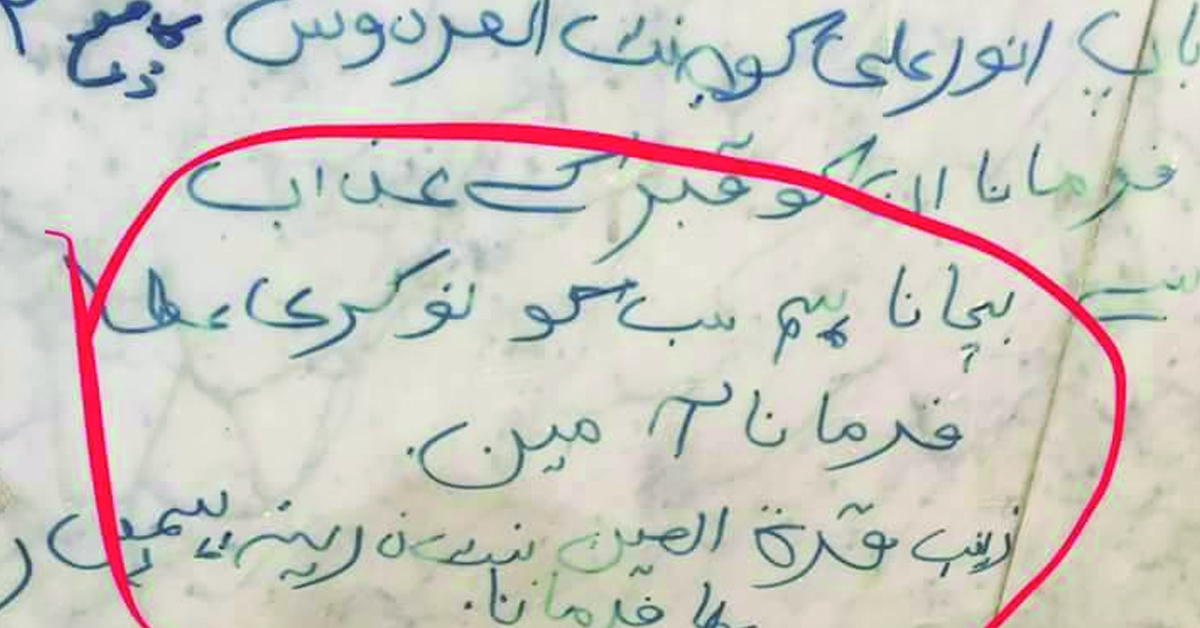 باپ انور علی کو جنت الفردوس میں
فرمانا ان کو قبر کے عذاب
سے بچانا ہم سب کو نوکری عطا
فرمانا آمین.
زینب قرۃ العین زرینہ یسمین
عطا فرمانا.